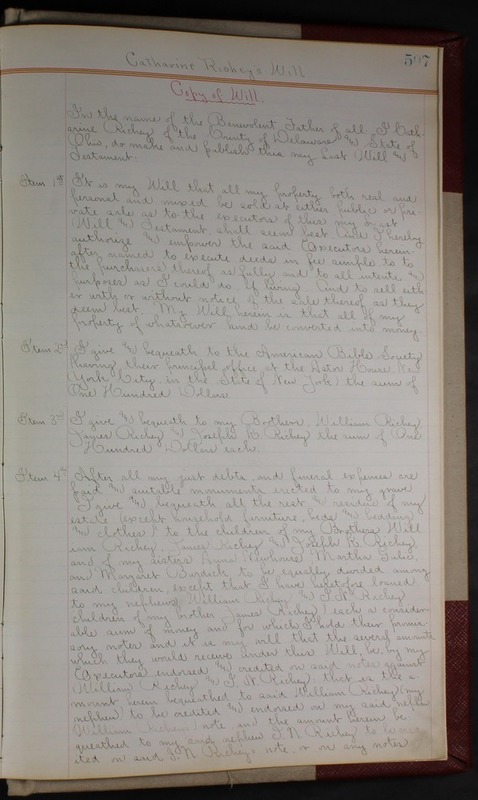 507
Catharine Richey's Will
Copy of Will.
In the name of the Benevolent Father of all, I Cath-
arine Richey of the County of Delaware & State of
Ohio, do make and publish this my Last Will &
Testament.
Item 1st It is my Will that all my property both real and
personal and mixed be sold at either public or pri-
vate sale as to the executors of this my Last
Will & Testament, shall seem best and I hereby
authorize & empower the said Executors herein-
after named to execute deeds in fee simple to to
the purchasers thereof as fully and to all intents &
purposes as I could do if living. And to sell eith-
er with or without notice of the sale thereof as they
deem best. My Will herein is that all of my
property of whatsoever kind be converted into money.
Item 2nd I give & bequeath to the American Bible Society
having their principal office at the Astor House, New
York City, in the State of New York the sum of
One Hundred Dollars.
Item 3rd I give & bequeath to my Brothers, William Richey
James Richey & Joseph R. Richey the sum of One
Hundred Dollars each.
Item 4th After all my just debts and funeral expenses are
paid & suitable monuments erected to my grave
I give & bequeath all the rest & residue of my
estate (except household furniture, beds & bedding
& clothes) to the children of my Brothers Will
iam Richey, James Richey & Joseph R. Richey
and of my sisters Anna Newhouse Martha
and Margaret Burdick to be equally divided among
said children, except that I have heretofore loaned
to my nephews William Richey & I. N. Richey
(children of my brother James Richey) each a consider-
able sum of money and for which I hold their promis-
sory notes and it is my will that the several amounts
which they would receive under this Will, be by my
Executors endorsed & credited on said notes against
William Richey & I. N. Richey. that is the a-
mount herein bequeathed to said William Richey (my
nephew) to be credited & endorsed on my said nephew
William Richey's note, and the amount herein be
queathed to my said nephew I. N. Richey to be cred-
ited on said I. N. Richey's note, or on any notes